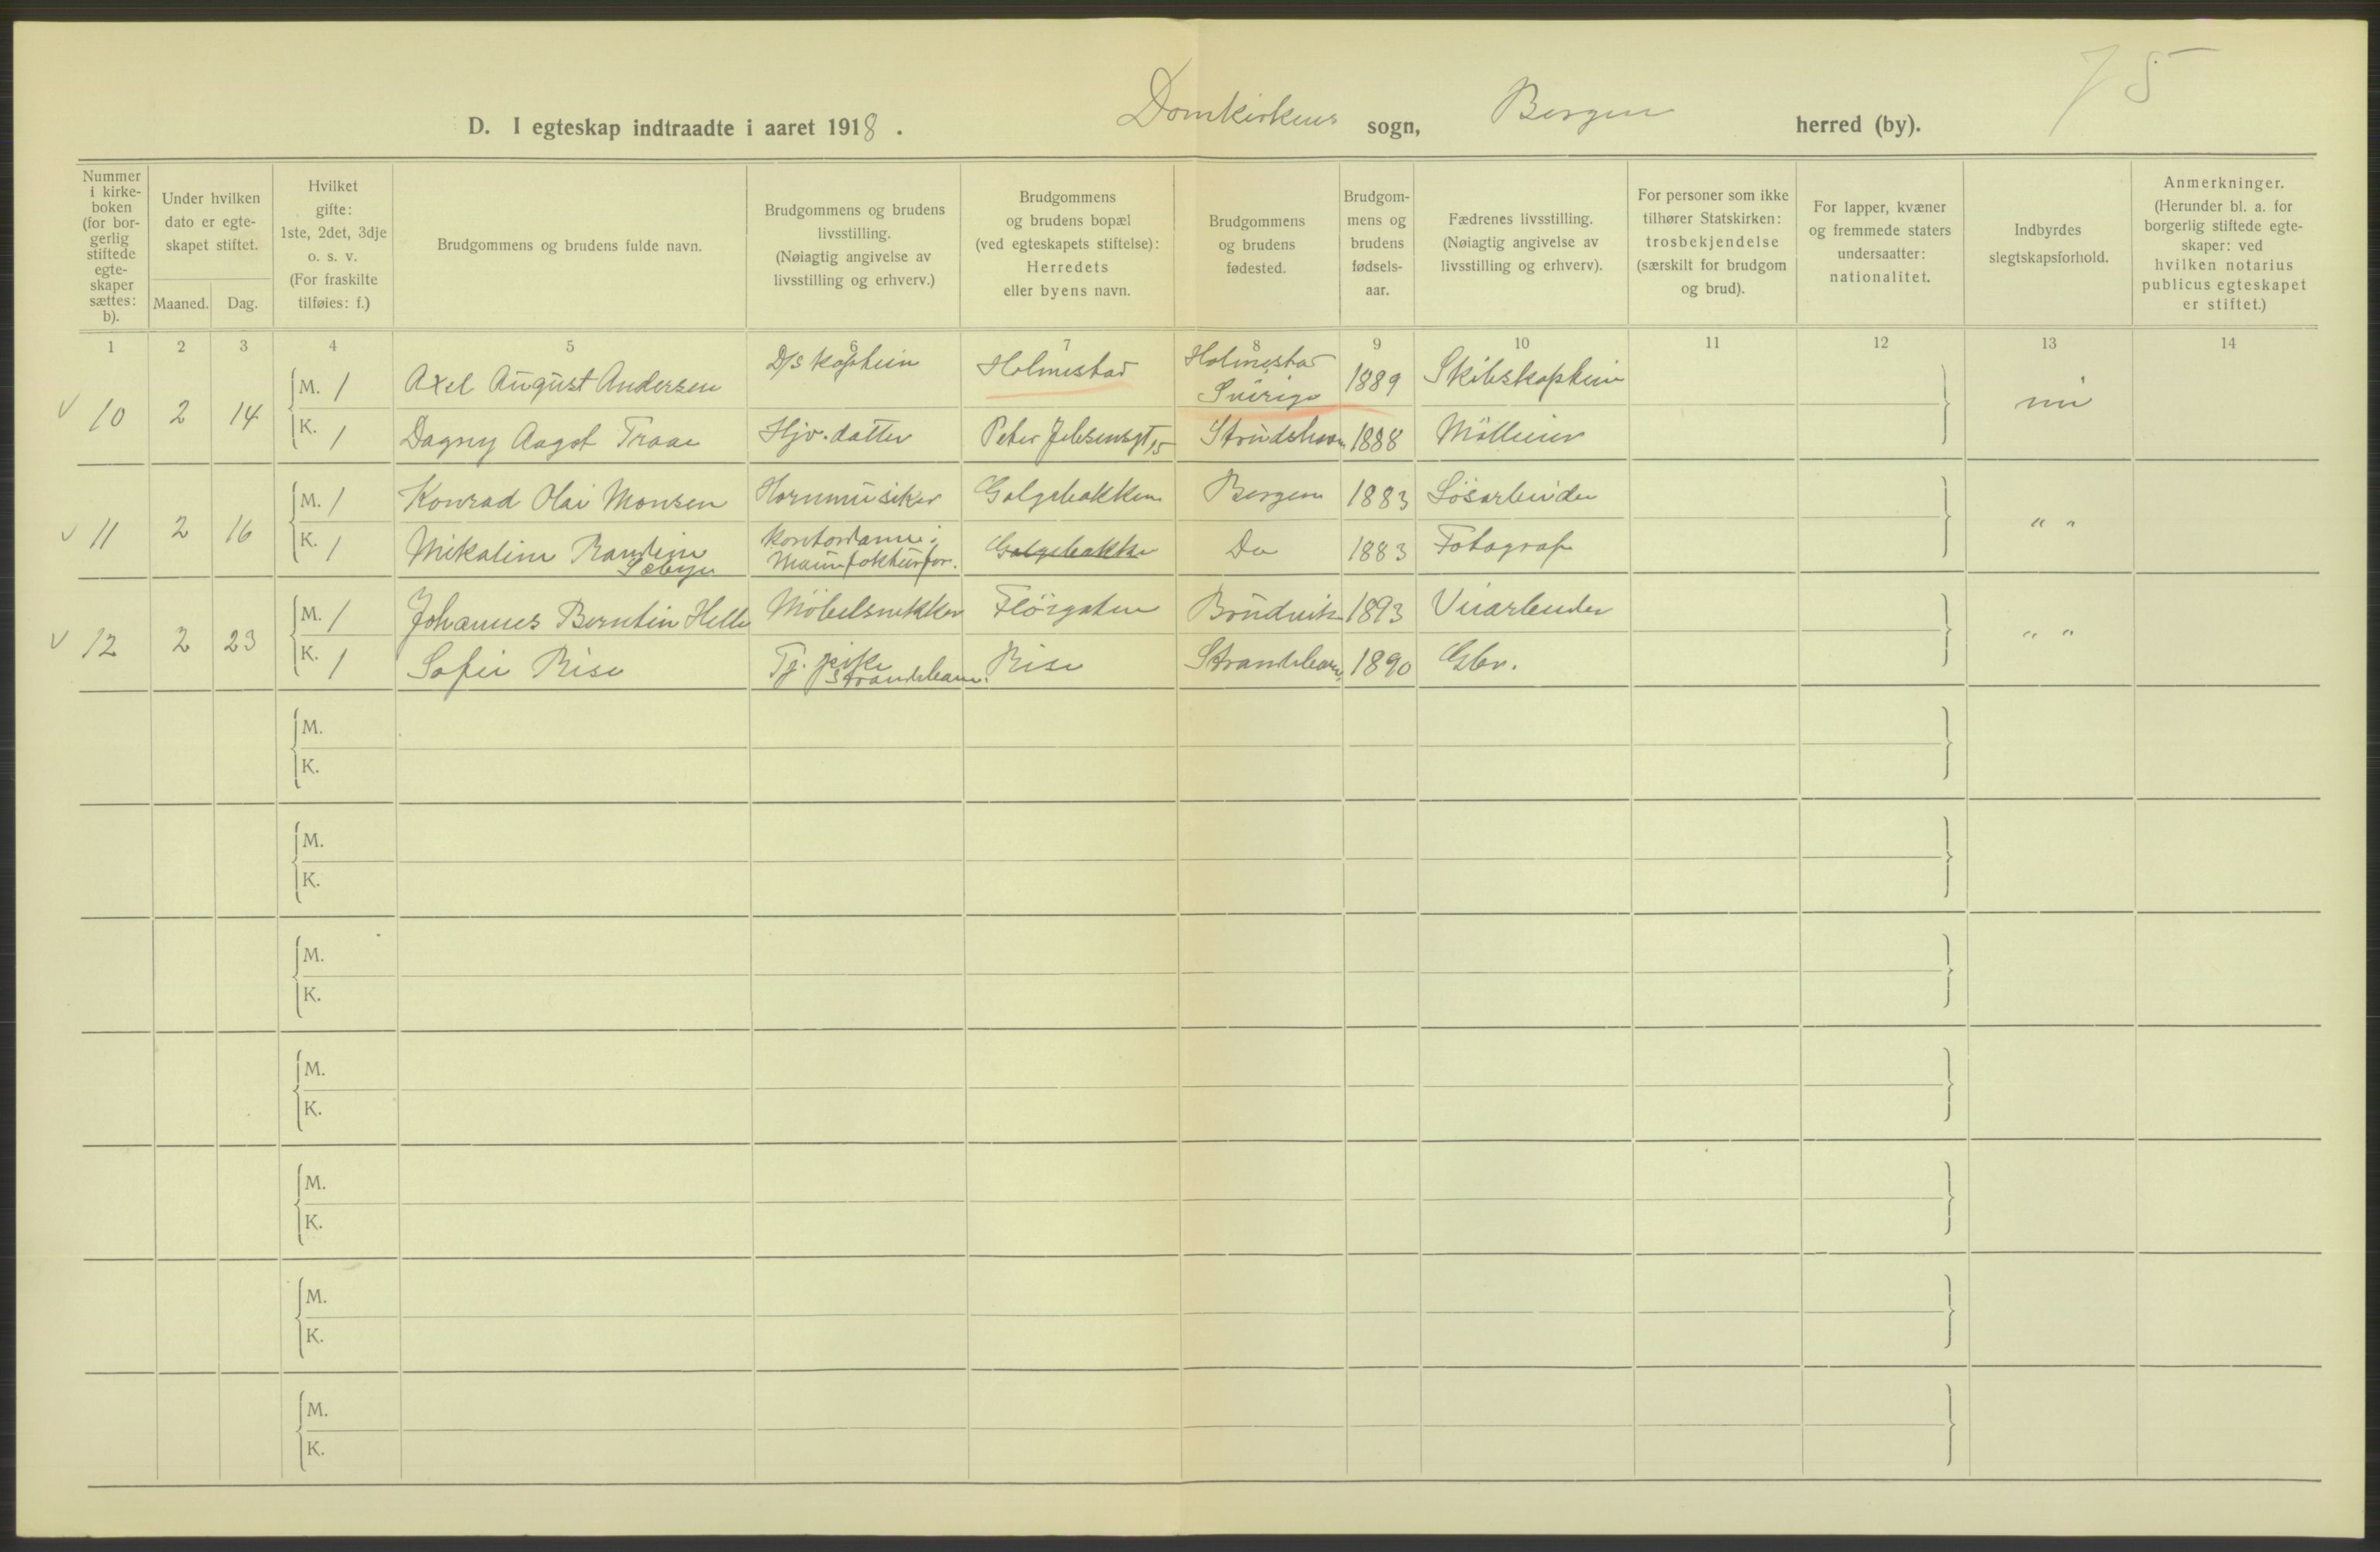 75
D. I egteskap indtraadte i aaret 1918. Domkirkens sogn, Bergen herred (by).
Nummer i kirke-boken (for bor-gerlig stiftede egte-skaper sættes: b).
Under hvilken dato er egte-skapet stiftet.
Maaned. Dag.
Hvilket gifte: 1ste, 2det, 3dje o. s. v. (For fraskilte tilføies: f.)
Brudgommens og brudens fulde navn.
Brudgommens og brudens livsstilling. (Nøiagtig angivelse av livsstilling og erhverv.)
Brudgommens og brudens bopæl (ved egteskapets stiftelse): Herredets eller byens navn.
Brudgommens og brudens fødested.
Brudgom-mens og brudens fødsels-aar.
Fædrenes livsstilling. (Nøiagtig angivelse av livsstilling og erhverv).
For personer som ikke tilhører Statskirken: trosbekjendelse (særskilt for brudgom og brud).
For lapper, kvæner og fremmede staters undersaatter: nationalitet.
Indbyrdes slegtskapsforhold.
Anmerkninger. (Herunder bl. a. for borgerlig stiftede egte-skaper: ved hvilken notarius publicus egteskapet er stiftet.)
1 2 3 4 5 6 7 8 9 10 11 12 13 14
v 10 2 14 M. 1 Axel August Andersen D/s kaptein Holmestad Holmestad Sverige 1889 Skibskaptein
K. 1 Dagny Aagot Traae Hjv. datter Peter Jebsensgt 15 1888 Mölleier
v 11 2 16 M. 1 Konrad Olai Monsen Hornmusiker Galgebakken Bergen 1883 Lösarbeider " "
K. 1 Mikaline Sæbye kontordame i Manufakturfor. Galgebakke Do 1883 Fotograf
v 12 2 23 M. 1 Johannes Berntin Helle Möbelsnekker Bruvik 1893 Veiarbeider " "
K. 1 Sofie Rise Tj. pike Strandebarm. Rise Strandebarm 1890 Gbr.
M.
K.
M.
K.
M.
K.
M.
K.
M.
K.
M.
K.
M.
K.